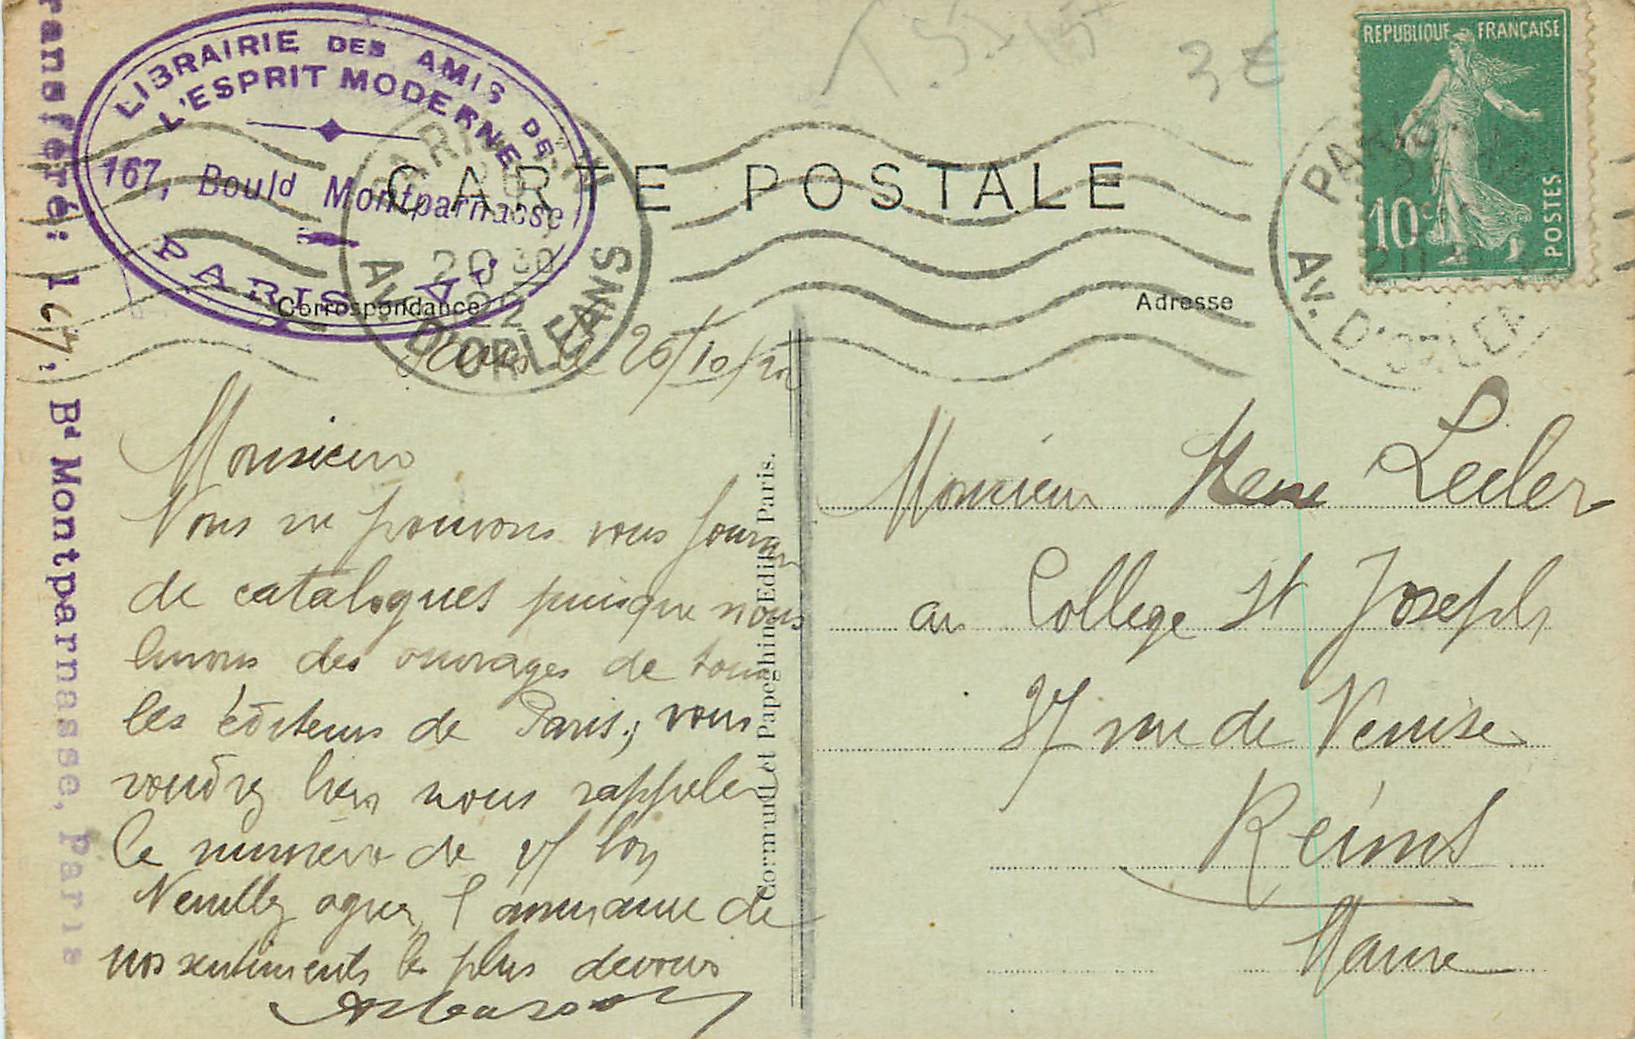 LIBRAIRIE DES AMIS DE
L'ESPRIT MODERNE
167, Bould Montparnasse
PARIS
CARTE POSTALE
REPUBLIQUE FRANÇAISE
10c
POSTES
PARIS
20 30
22
Av. D'ORLEANS
PARIS
Av. D'ORLEANS
3 €
Correspondance
Adresse
Paris le 26/10/22
Monsieur
Nous ne pouvons vous fournir
de catalogues puisque nous
livrons des ouvrages de tous
les éditeurs de Paris; vous
voudrez bien nous rappeler
le numéro de
Veuillez agréer l'assurance de
nos sentiments les plus dévoués
Monsieur René Lecler
au College St Joseph
37 rue de Venise
Reims
Marne
ransféré: 167, Bd Montparnasse, Paris
Cormault et Papeghin, Edit., Paris.